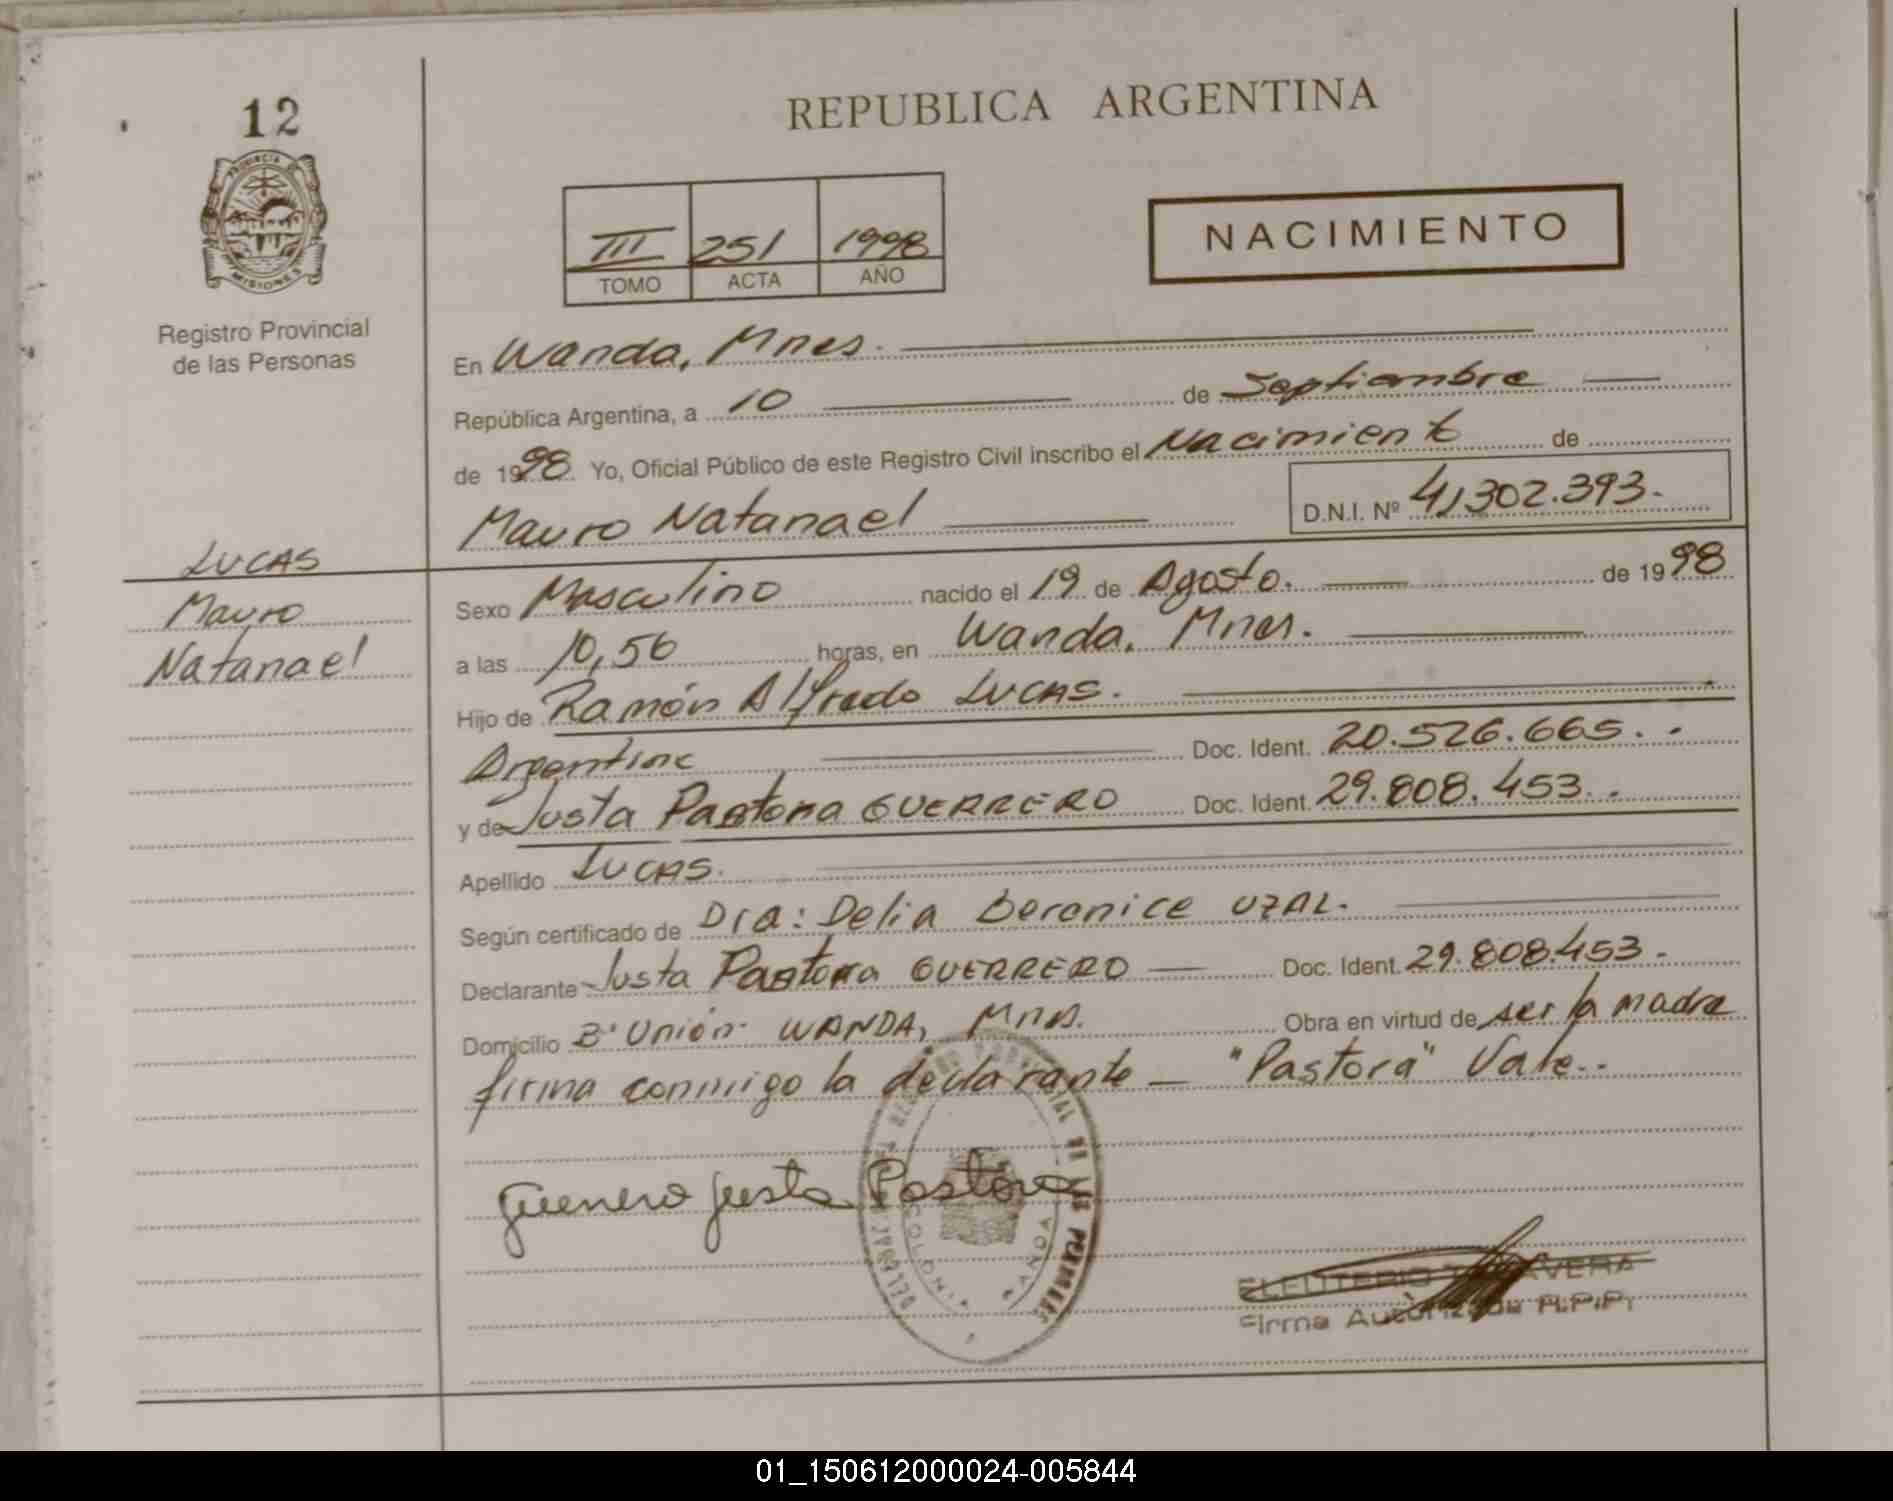 12
PROVINCIA DE
MISIONES
Registro Provincial
de las Personas
LUCAS
Mauro
Natanael
REPUBLICA ARGENTINA
III 251 1998
TOMO ACTA AÑO
NACIMIENTO
En Wanda, Mnes.
República Argentina, a 10 de Septiembre
de 1998. Yo, Oficial Público de este Registro Civil inscribo el Nacimiento de
Mauro Natanael D.N.I. Nº 41302.393.
Sexo Masculino nacido el 19 de Agosto. de 1998
a las 10,56 horas, en Wanda, Mnes.
Hijo de Ramón Alfredo LUCAS.
Argentino Doc. Ident. 20.526.665.
y de Justa Pastora GUERRERO Doc. Ident. 29.808.453.
Apellido LUCAS.
Según certificado de Dra: Delia Berenice UZAL.
Declarante Justa Pastora GUERRERO Doc. Ident. 29.808.453.
Domicilio Bº Unión- WANDA, Mnes. Obra en virtud de ser la madre
firma conmigo la declarante — "Pastora" Vale..
Guerrero Justa Pastora
COLONIA WANDA
ELEUTERIO
Firma Autorizada R.P.P.
01_150612000024-005844